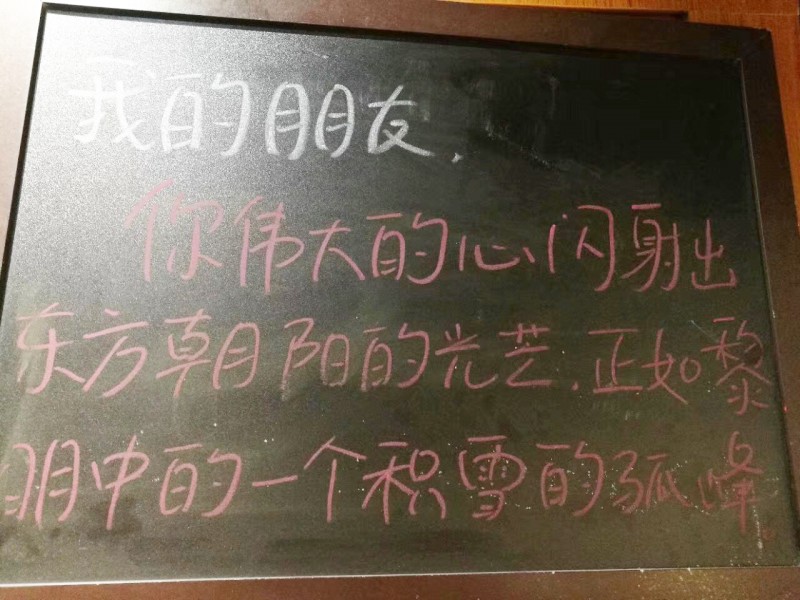 我的朋友,
你伟大的心闪射出
东方朝阳的光芒,正如黎
明中的一个积雪的孤峰。